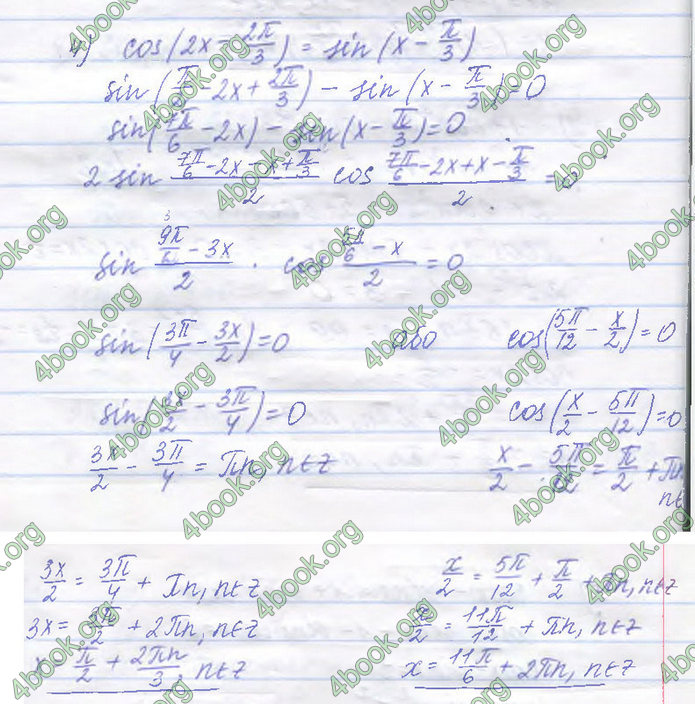 4) cos(2x - 2π/3) = sin(x - π/3)
sin(π/2 - 2x + 2π/3) - sin(x - π/3) = 0
sin(7π/6 - 2x) - sin(x - π/3) = 0
2 sin (7π/6 - 2x - x + π/3)/2 cos (7π/6 - 2x + x - π/3)/2 = 0
sin (9π/6 - 3x)/2 · cos (5π/6 - x)/2 = 0
sin(3π/4 - 3x/2) = 0 або cos(5π/12 - x/2) = 0
sin(3x/2 - 3π/4) = 0 cos(x/2 - 5π/12) = 0
3x/2 - 3π/4 = πn, n∈z x/2 - 5π/12 = π/2 + πn
n∈
3x/2 = 3π/4 + πn, n∈z x/2 = 5π/12 + π/2 + πn, n∈z
3x = 3π/2 + 2πn, n∈z x/2 = 11π/12 + πn, n∈z
x = π/2 + 2πn/3, n∈z x = 11π/6 + 2πn, n∈z
4book.org